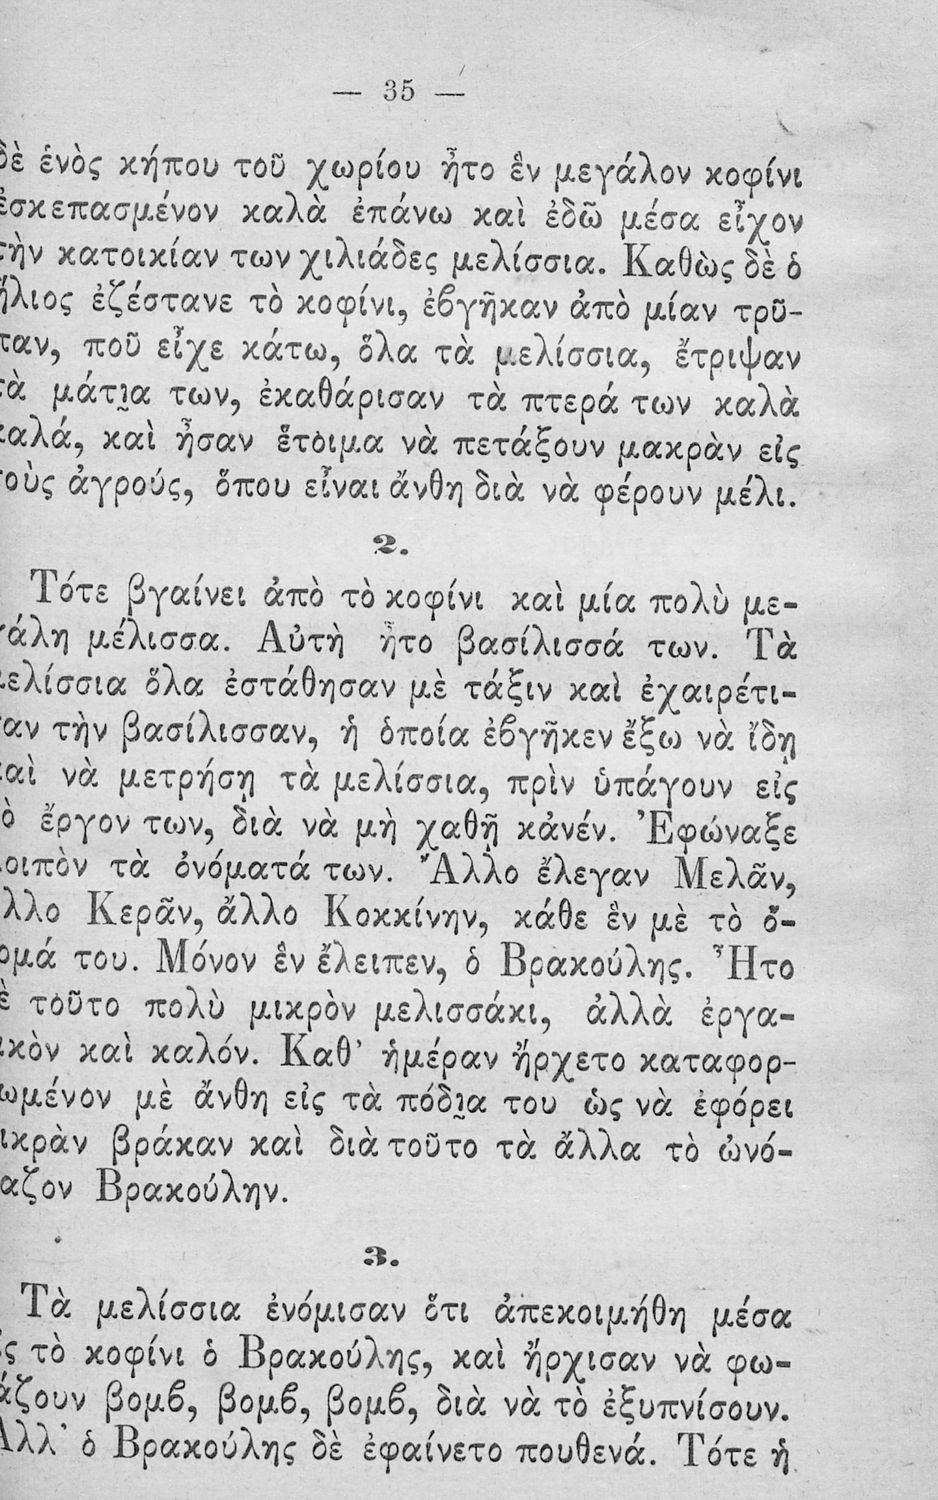 — 35 —
δὲ ἑνὸς κήπου τοῦ χωρίου ἦτο ἓν μεγάλον κοφίνι
ἐσκεπασμένον καλὰ ἐπάνω καὶ ἐδῶ μέσα εἶχον
τὴν κατοικίαν των χιλιάδες μελίσσια. Καθὼς δὲ ὁ
ἥλιος ἐζέστανε τὸ κοφίνι, ἐβγῆκαν ἀπὸ μίαν τρῦ-
παν, ποῦ εἶχε κάτω, ὅλα τὰ μελίσσια, ἔτριψαν
τὰ μάτια των, ἐκαθάρισαν τὰ πτερά των καλὰ
καλά, καὶ ἦσαν ἕτοιμα νὰ πετάξουν μακρὰν εἰς
τοὺς ἀγρούς, ὅπου εἶναι ἄνθη διὰ νὰ φέρουν μέλι.
2.
Τότε βγαίνει ἀπὸ τὸ κοφίνι καὶ μία πολὺ με-
γάλη μέλισσα. Αὐτὴ ἦτο βασίλισσά των. Τὰ
μελίσσια ὅλα ἐστάθησαν μὲ τάξιν καὶ ἐχαιρέτι-
σαν τὴν βασίλισσαν, ἡ ὁποία ἐβγῆκεν ἔξω νὰ ἴδῃ
καὶ νὰ μετρήσῃ τὰ μελίσσια, πρὶν ὑπάγουν εἰς
τὸ ἔργον των, διὰ νὰ μὴ χαθῇ κἀνέν. Ἐφώναξε
λοιπὸν τὰ ὀνόματά των. Ἄλλο ἔλεγαν Μελᾶν,
ἄλλο Κερᾶν, ἄλλο Κοκκίνην, κάθε ἓν μὲ τὸ ὄ-
νομά του. Μόνον ἓν ἔλειπεν, ὁ Βρακούλης. Ἦτο
δὲ τοῦτο πολὺ μικρὸν μελισσάκι, ἀλλὰ ἐργα-
τικὸν καὶ καλόν. Καθ' ἡμέραν ἤρχετο καταφορ-
τωμένον μὲ ἄνθη εἰς τὰ πόδια του ὡς νὰ ἐφόρει
μικρὰν βράκαν καὶ διὰ τοῦτο τὰ ἄλλα τὸ ὠνό-
μαζον Βρακούλην.
3.
Τὰ μελίσσια ἐνόμισαν ὅτι ἀπεκοιμήθη μέσα
εἰς τὸ κοφίνι ὁ Βρακούλης, καὶ ἤρχισαν νὰ φω-
νάζουν βομβ, βομβ, βομβ, διὰ νὰ τὸ ἐξυπνίσουν.
Ἀλλ' ὁ Βρακούλης δὲ ἐφαίνετο πουθενά. Τότε ἡ